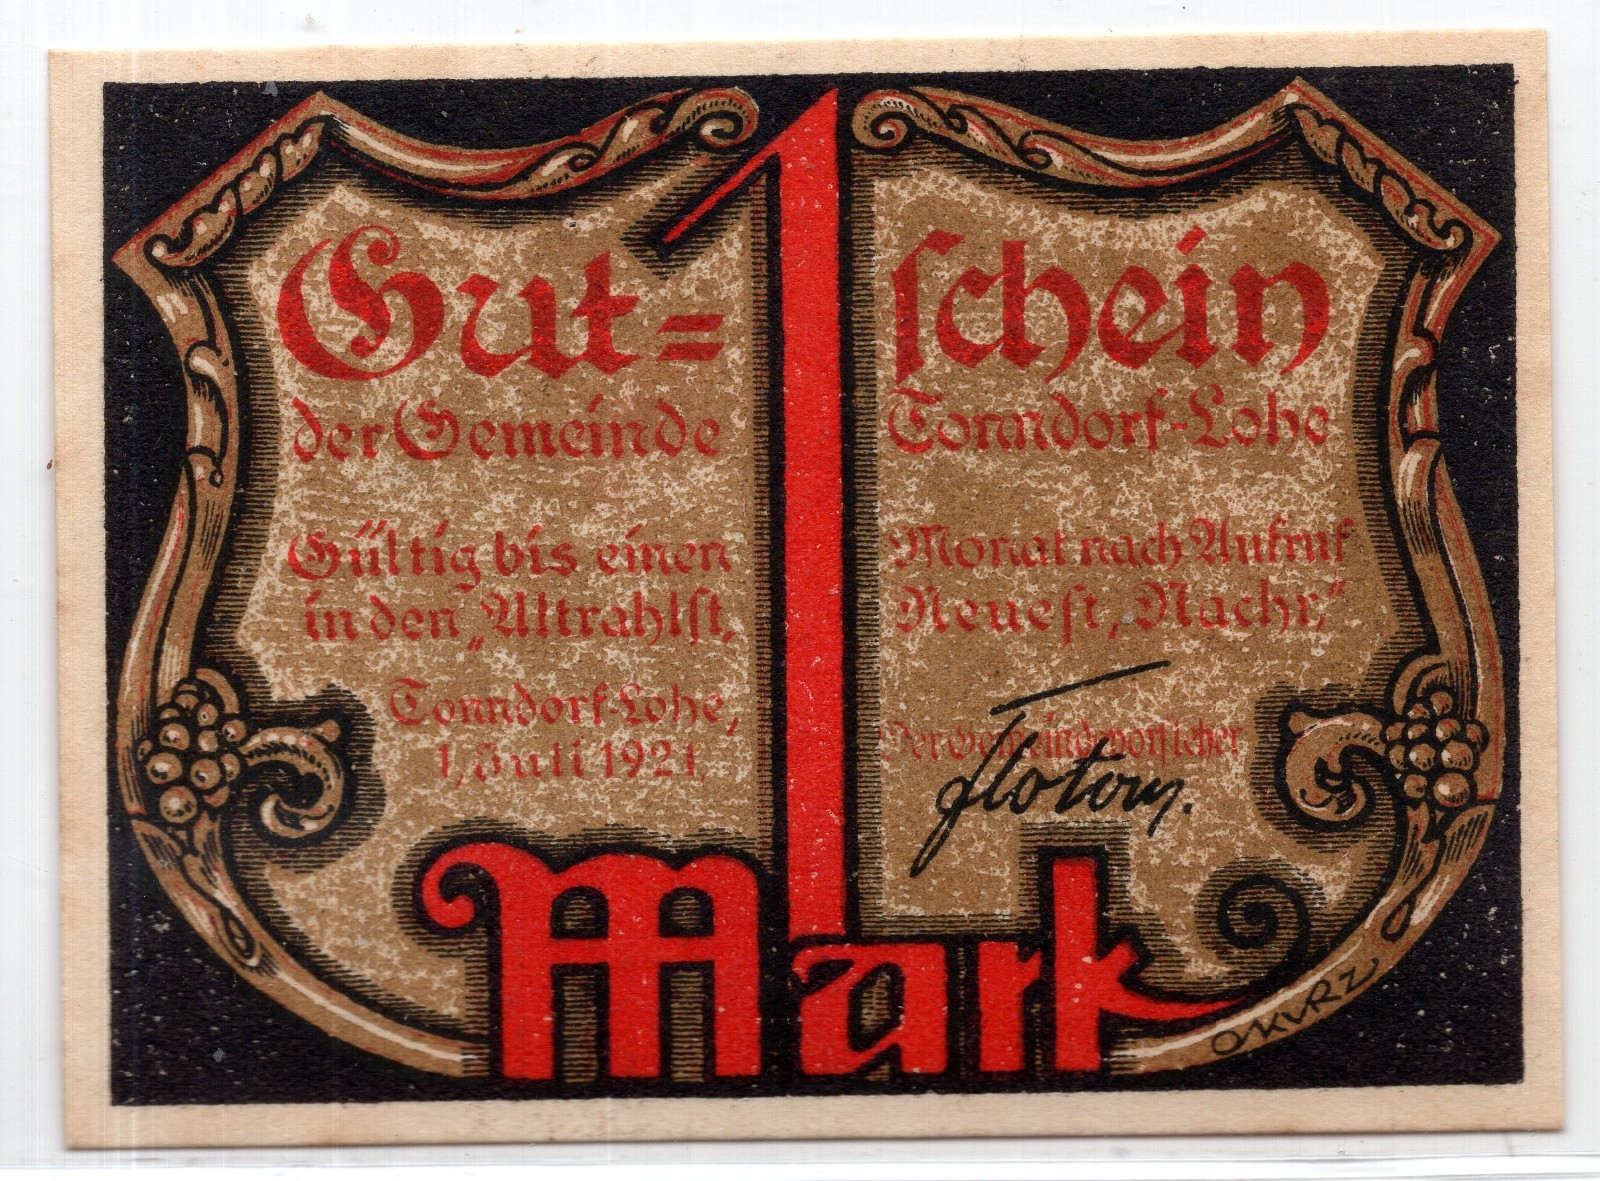 Gut= schein
der Gemeinde Tonndorf-Lohe
Gültig bis einen Monat nach Aufruf
in den „Altrahlst. Neuest. Nachr."
Tonndorf-Lohe,
1. Juli 1921.
Der Gemeindevorsteher
1
Mark
O KURZ